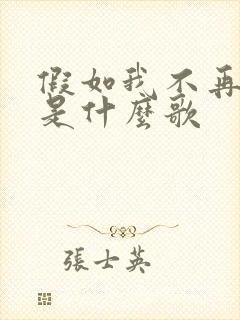 假如我不再
是什麼歌
張士英